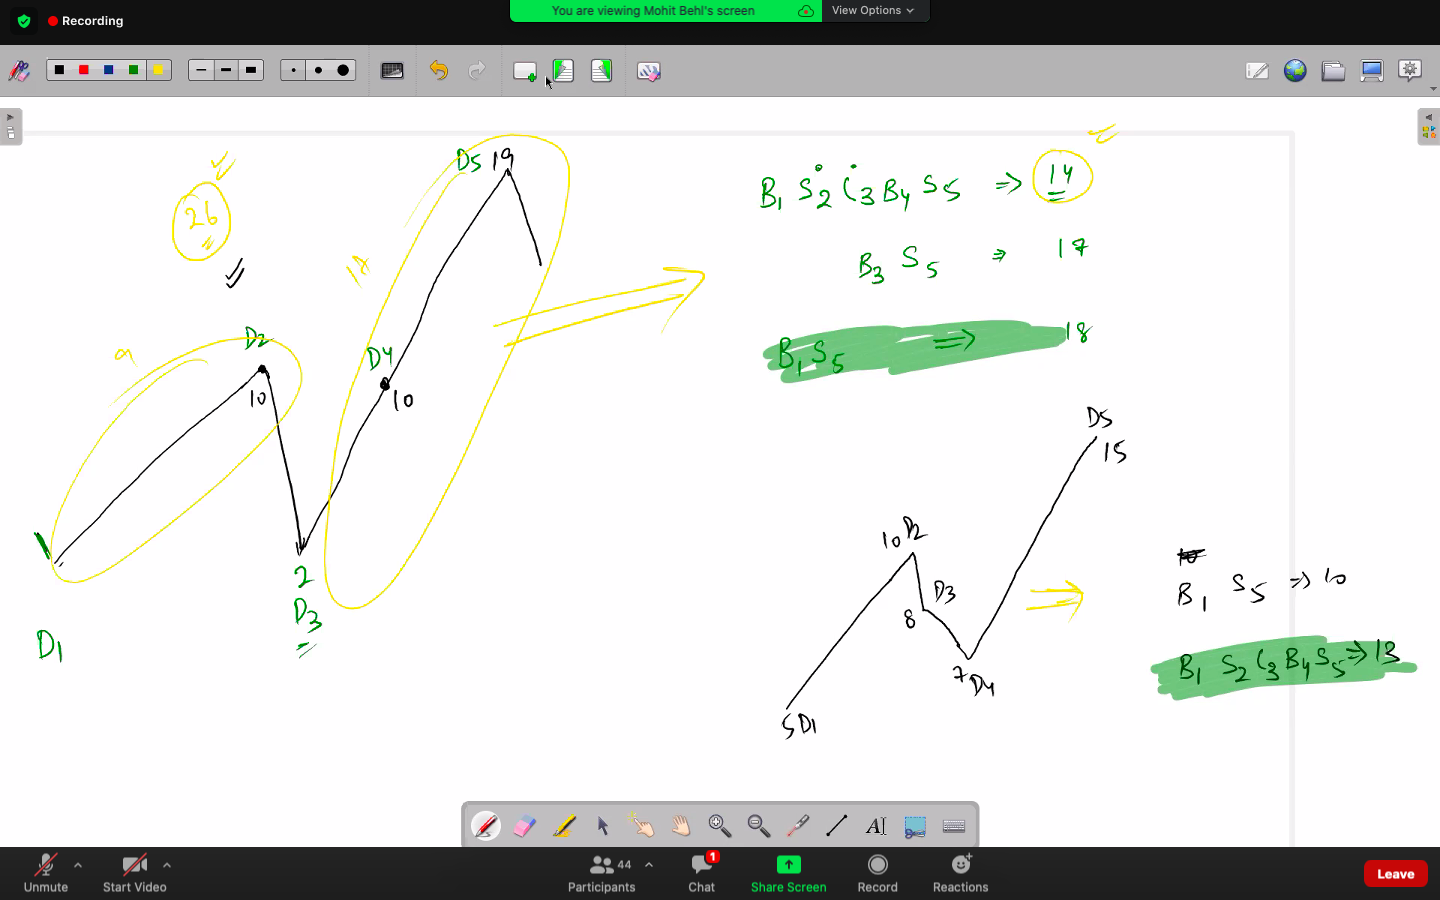 Recording
You are viewing Mohit Behl's screen
View Options
26
D5 19
17
B1 S2 C3 B4 S5 => 14
B3 S5 => 17
B1 S5 => 18
9
D2
10
D4
10
1
2
D3
D1
D5
15
10 D2
D3
8
7 D4
5 D1
B1 S5 => 10
B1 S2 C3 B4 S5 => 13
Unmute
Start Video
Participants
44
Chat
1
Share Screen
Record
Reactions
Leave